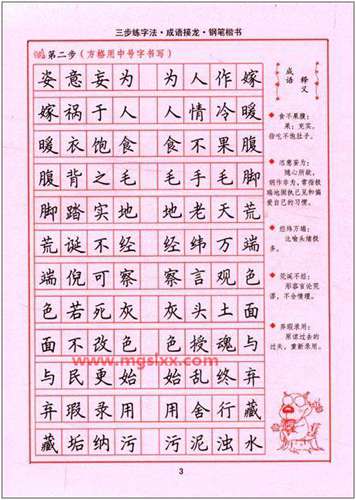 三步练字法·成语接龙·钢笔楷书
第二步（方格用中号字书写）
姿意妄为 为人作嫁
嫁祸于人 人情冷暖
暖衣饱食 食不果腹
腹背之毛 毛手毛脚
脚踏实地 地老天荒
荒诞不经 经纬万端
端倪可察 察言观色
色若死灰 灰头土面
面不改色 色授魂与
www.mgslxx.com
与民更始 始乱终弃
弃瑕录用 用舍行藏
藏垢纳污 污泥浊水
成语
释义
食不果腹：
果：充实。
指吃不饱肚子。
恣意妄为：
随心所欲，
胡作非为。常指极
端地固执己见和偏
爱自己的习惯。
经纬万端：
比喻头绪极
多。
荒诞不经：
形容言论荒
谬，不合情理。
弃瑕录用：
原谅过去的
过失，重新录用。
3